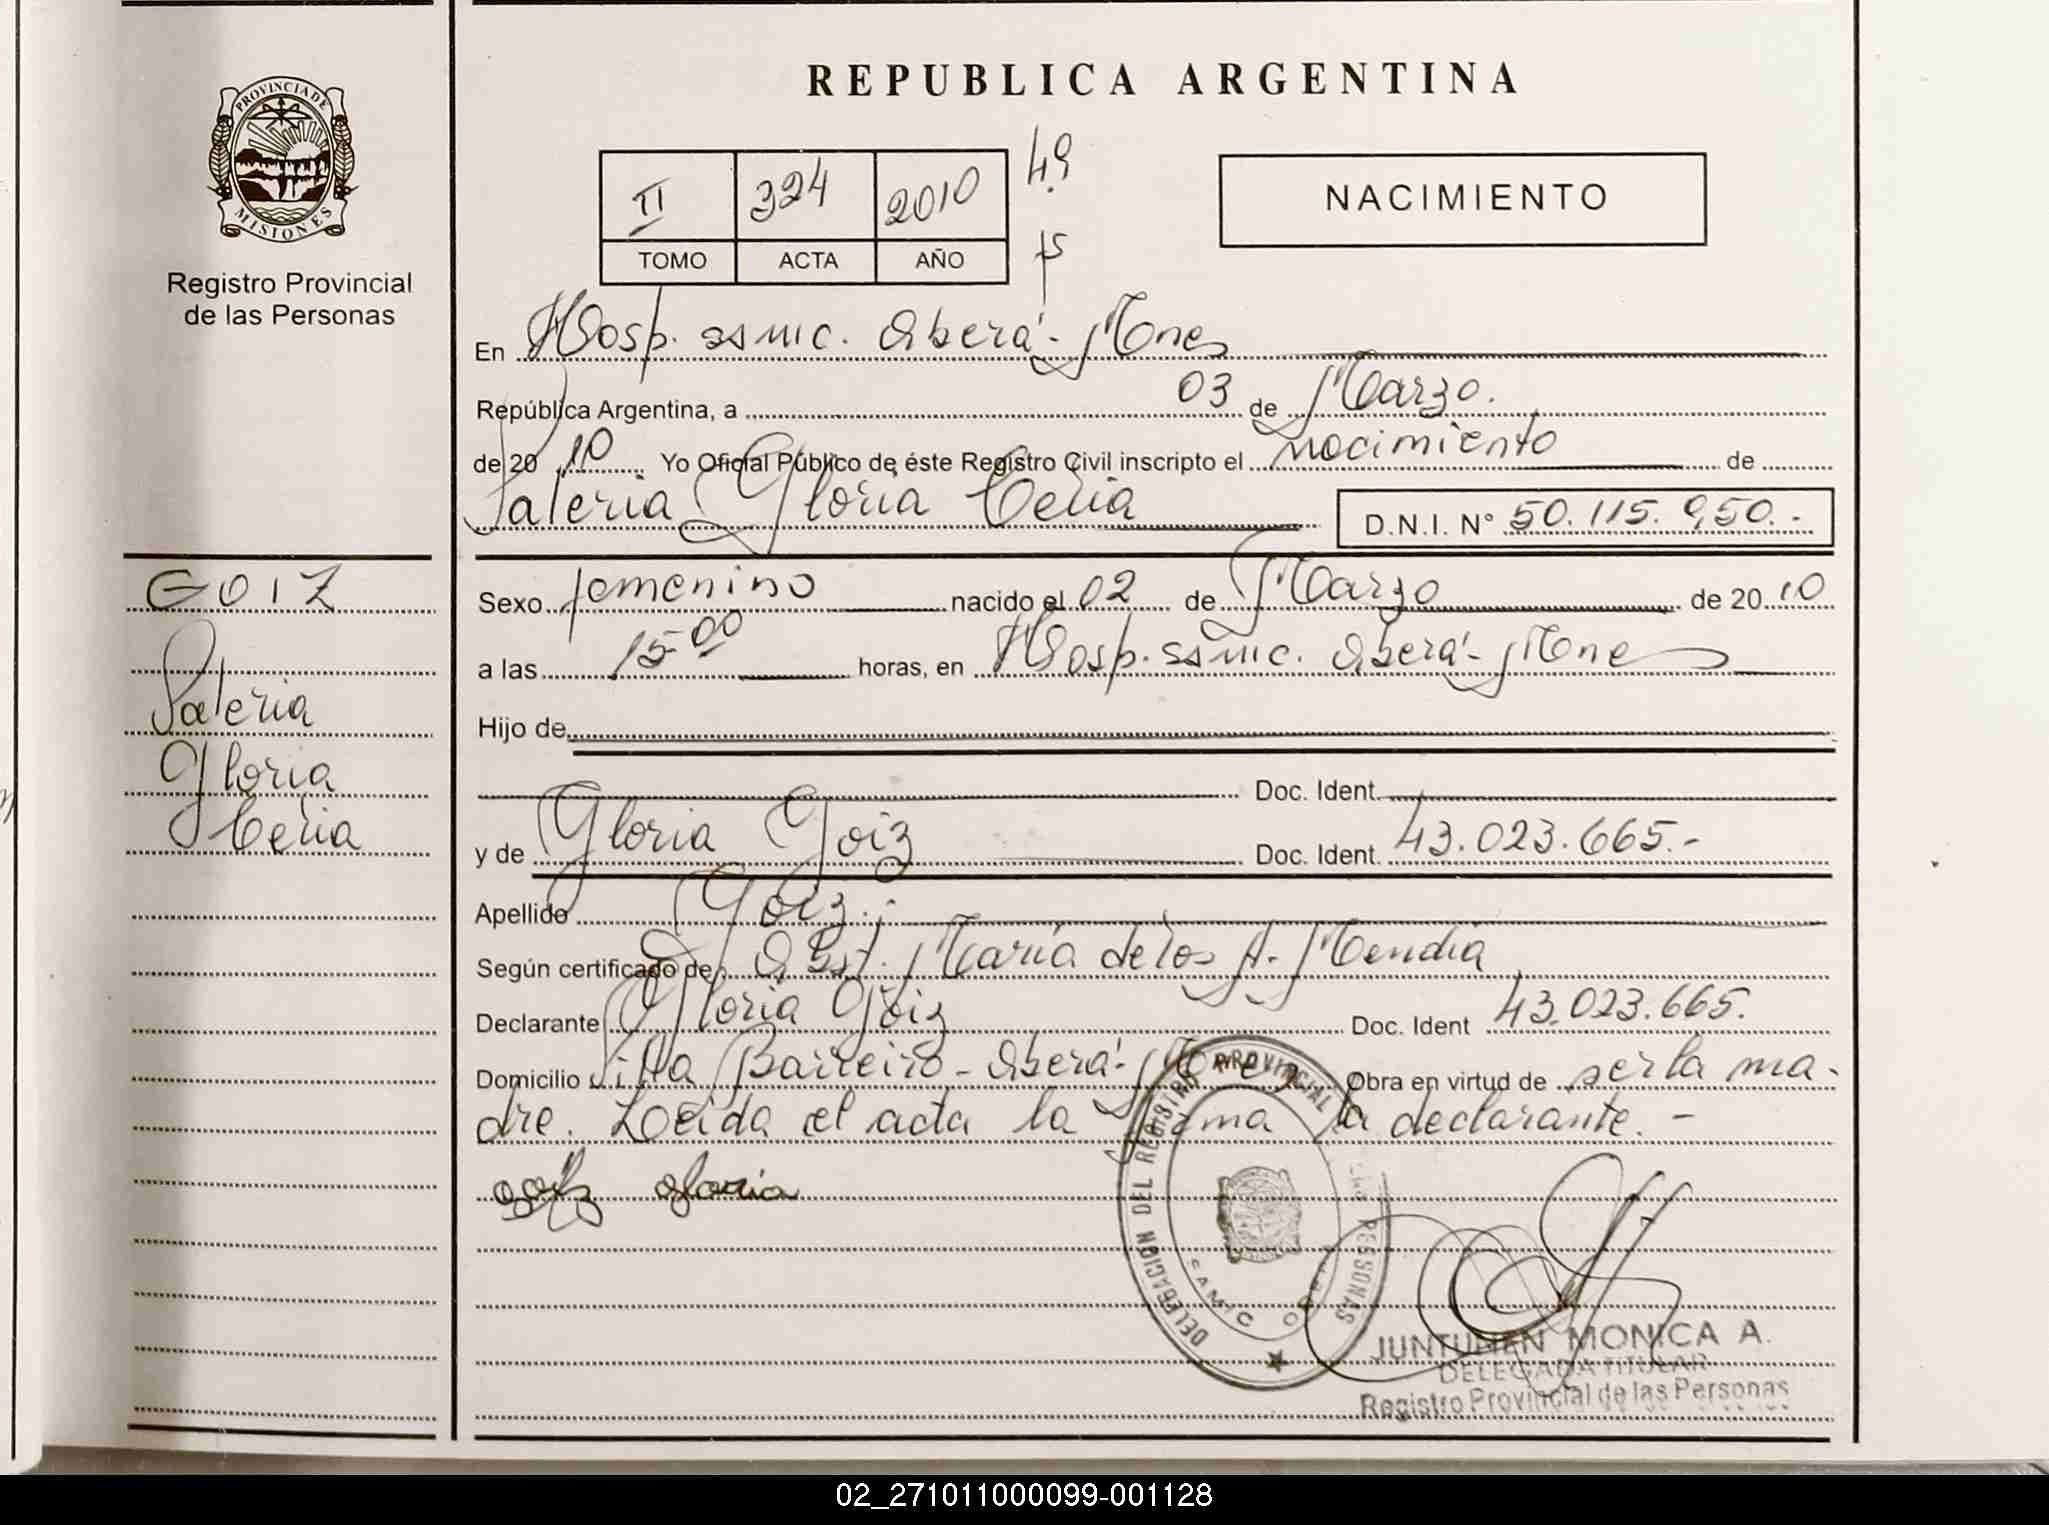 REPUBLICA ARGENTINA
PROVINCIA DE MISIONES
Registro Provincial
de las Personas
II 324 2010 49
TOMO ACTA AÑO
NACIMIENTO
En Hosp. ssmic. Oberá - Mnes
República Argentina, a 03 de Marzo.
de 20 10 Yo Oficial Público de éste Registro Civil inscripto el nacimiento de
Valeria Gloria Celia D.N.I. N° 50.115.950.-
GOIZ
Valeria
Gloria
Celia
Sexo femenino nacido el 02 de Marzo de 20 10
a las 15-00 horas, en Hosp. ssmic. Oberá - Mnes
Hijo de
Doc. Ident.
y de Gloria Goiz Doc. Ident. 43.023.665.-
Apellido Goiz.
Según certificado de Obst. María de los A. Mendia
Declarante Gloria Goiz Doc. Ident 43.023.665.
Domicilio Villa Barreiro - Oberá - Mnes Obra en virtud de ser la ma-
dre. Leída el acta la firma la declarante. -
goiz gloria
DELEGACION DEL REGISTRO PROVINCIAL PERSONAS
SAMIC
JUNTUNEN MONICA A.
DELEGADA TITULAR
Registro Provincial de las Personas
02_271011000099-001128